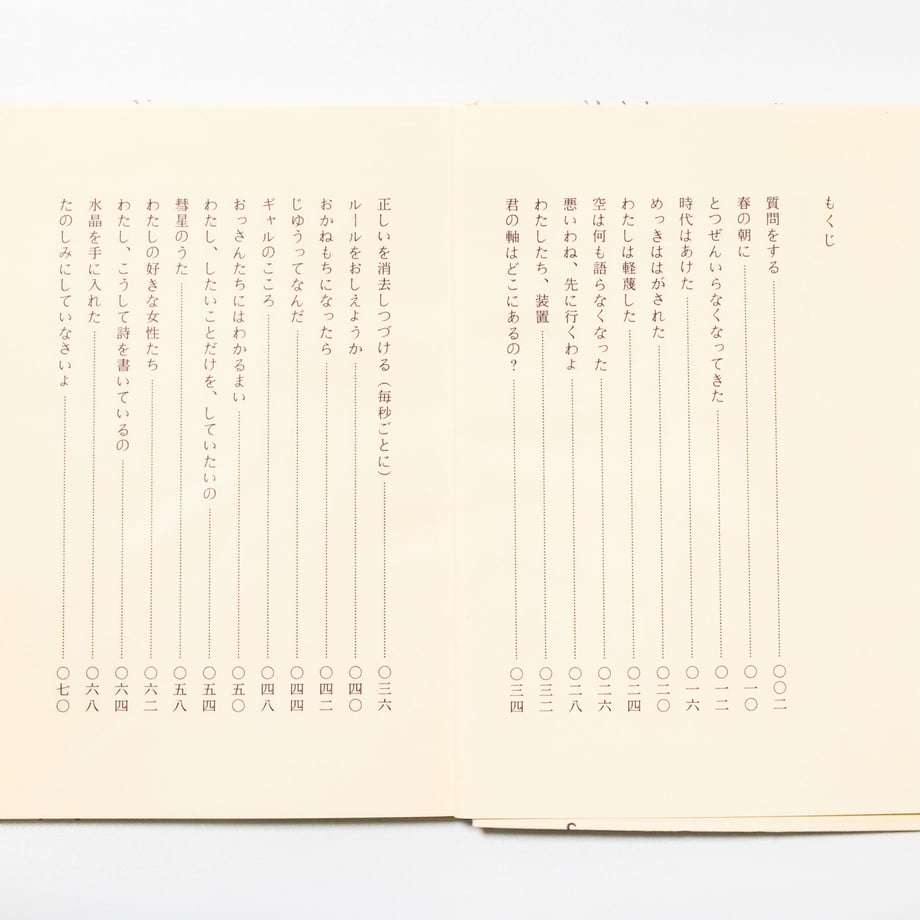 もくじ
質問をする……〇〇二
春の朝に……〇一〇
とつぜんいらなくなってきた……〇一二
時代はあけた……〇一六
めっきははがされた……〇二〇
わたしは軽蔑した……〇二四
空は何も語らなくなった……〇二六
悪いわね、先に行くわよ……〇二八
わたしたち、装置……〇三二
君の軸はどこにあるの？……〇三四
正しいを消去しつづける（毎秒ごとに）……〇三六
ルールをおしえようか……〇四〇
おかねもちになったら……〇四二
じゆうってなんだ……〇四四
ギャルのこころ……〇四八
おっさんたちにはわかるまい……〇五〇
わたし、したいことだけを、していたいの……〇五四
彗星のうた……〇五八
わたしの好きな女性たち……〇六二
わたし、こうして詩を書いているの……〇六四
水晶を手に入れた……〇六八
たのしみにしていなさいよ……〇七〇